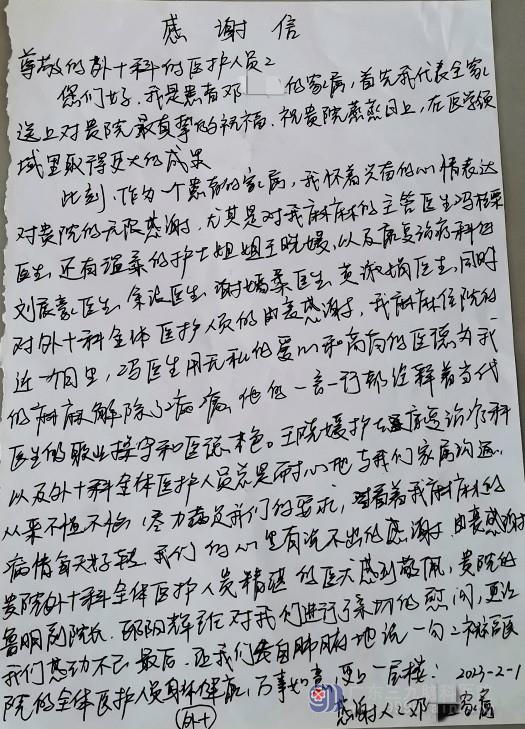 感谢信
尊敬的外十科的医护人员:
您们好.我是患者邓 的家属,首先我代表全家
送上对贵院最真挚的祝福.祝贵院蒸蒸日上,在医学领
域里取得更大的成果
此刻.作为一个患者的家属,我怀着兴奋的心情表达
对贵院的无限感谢.尤其是对我麻麻的主管医生冯 
医生.还有温柔的护士姐姐王晓媛.以及康复治疗科的
刘辰豪医生.余波医生.谢嫣柔医生.莫淑娟医生.同时
对外十科全体医护人员的由衷感谢.我麻麻住院的
近一个月里,冯医生用无私的爱心和高尚的医德为我
的麻麻解除了病痛.他的一言一行都诠释着当代
医生的职业操守和医德本色。王晓媛护士 康复治疗科
以及外十科全体医护人员总是耐心地与我们家属沟通.
从来不愠不恼.尽力满足我们的要求,看着我麻麻的
病情每天好转.我们的心里有说不出的感谢.由衷感谢
贵院外十科全体医护人员精湛的医术感到敬佩,贵院的
鲁明副院长.邵阳辉主任对我们进行了亲切的慰问,更让
我们感动不已.最后.让我们发自肺腑地说一句:祝 
院的全体医护人员身体健康,万事如意,更上一层楼:
2023-2-1
外十
感谢人:邓 家属
广东三九脑科医院